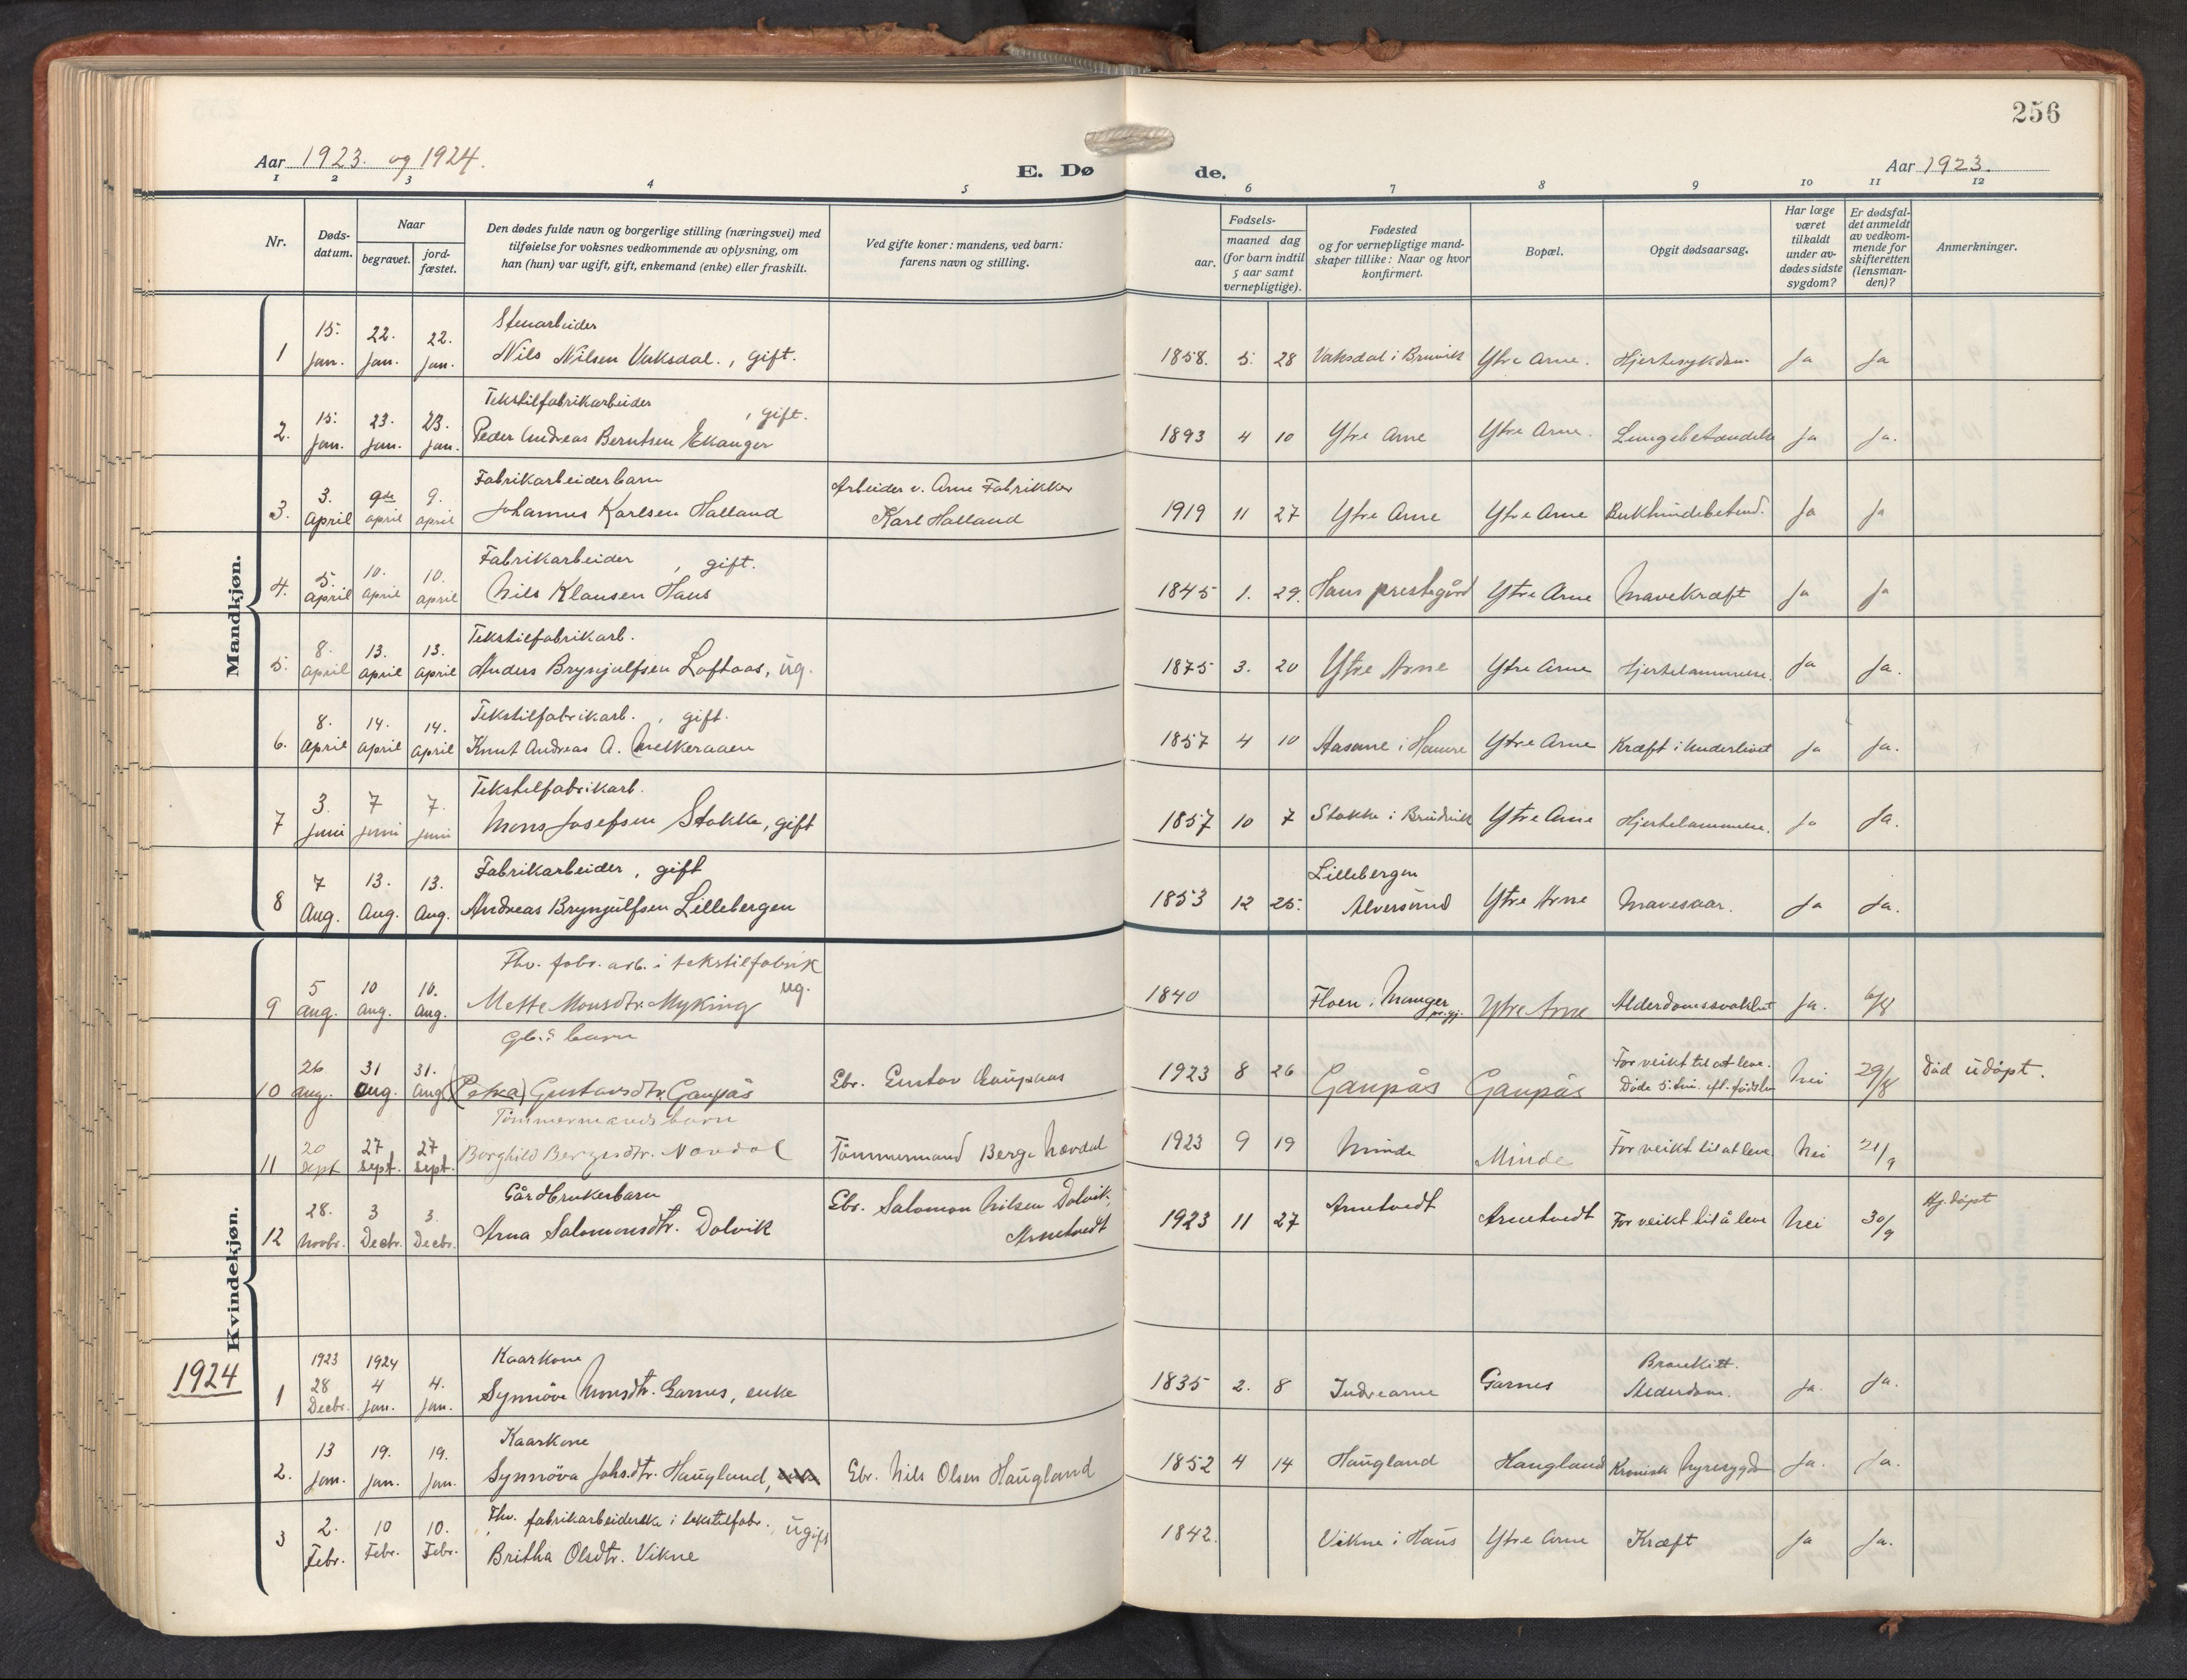 256
Aar 1923. og 1924.
E. Dø de.
Aar 1923.
1 2 3 4 5 6 7 8 9 10 11 12
Nr.
Døds-
datum.
Naar
begravet.
jord-
fæstet.
Den dødes fulde navn og borgerlige stilling (næringsvei) med
tilføielse for voksnes vedkommende av oplysning, om
han (hun) var ugift, gift, enkemand (enke) eller fraskilt.
Ved gifte koner: mandens, ved barn:
farens navn og stilling.
Fødsels-
aar.
maaned dag
(for barn indtil
5 aar samt
vernepligtige).
Fødested
og for vernepligtige mand-
skaper tillike: Naar og hvor
konfirmert.
Bopæl.
Opgit dødsaarsag.
Har læge
været
tilkaldt
under av-
dødes sidste
sygdom?
Er dødsfal-
det anmeldt
av vedkom-
mende for
skifteretten
(lensman-
den)?
Anmerkninger.
Mandkjøn.
Stenarbeider
1 15. Jan. 22. Jan. 22. Jan. Nils Nilsen Vaksdal., gift. 1858. 5. 28 Vaksdal i Bruvik Ytre Arne. Hjertesykdom Ja Ja
Tekstilfabrikarbeider , gift.
2. 15. Jan. 23. Jan. 23. Jan. Peder Andreas Berntsen Ekanger 1893 4 10 Ytre Arne Ytre Arne. Lungebetændelse Ja Ja.
Fabrikarbeiderbarn Arbeider v. Arne Fabrikker
3. 3. April 9de april 9. april Johannes Karlsen Halland Karl Halland 1919 11 27 Ytre Arne Ytre Arne Bukhindebetend. Ja Ja
Fabrikarbeider , gift.
4. 5. April 10. April 10. april Nils Klausen Haus 1845 1. 29. Haus prestegård Ytre Arne Mavekræft Ja Ja
Tekstilfabrikarb.
5. 8. april 13. april 13. april Anders Brynjulfsen Loftaas, ug. 1875 3. 20 Ytre Arne Ytre Arne Hjertelammelse. Ja Ja.
Tekstilfabrikarb. , gift.
6. 8. April 14. april 14. april Knut Andreas A. Melkeraaen 1857 4 10 Aasane i Hamre Ytre Arne Kræft i Underlivet Ja Ja.
Tekstilfabrikarb.
7 3. Juni 7 juni 7. juni Mons Josefsen Stokke, gift 1857 10 7 Stokke i Bruvik Ytre Arne Hjertelammelse. Ja Ja.
Fabrikarbeider, gift Lillebergen
8 7 Aug. 13. Aug. 13. Aug. Andreas Brynjulfsen Lillebergen 1853 12 25. Alversund Ytre Arne Mavesaar. Ja Ja.
Kvindekjøn.
Fhv. fabr. arb. i tekstilfabrik
ug.
9 5 aug. 10 aug. 10. aug. Mette Monsdtr. Myking 1840 Floen i Manger pr.gj. Ytre Arne Alderdomssvakhet Ja. 6/8
Gbr.s barn
10 26 aug. 31 aug. 31. aug (Petra) Gustavsdtr. Gaupås Gbr. Gustav Gaupaas 1923 8 26 Gaupås Gaupås For veikt til at leve. Døde 5 tim. eft. fødslen Nei 29/8 Död udöpt.
Tømmermands barn
11 20 sept 27 sept. 27 sept. Borghild Bergesdtr. Nævdal Tømmermand Berge Nævdal 1923 9 19 Minde Minde For veikt til at leve Nei 21/9
Gårdbrukerbarn
12 28. Novbr. 3 Decbr. 3. Decbr. Arna Salomonsdtr. Dalvik Gbr. Salomon Nilsen Dalvik, Arnetvedt 1923 11 27 Arnetvedt Arnetvedt For veikt til å leve Nei 30/9 Hj.döpt
1924
Kaarkone
1 1923 28 Decbr. 1924 4 Jan. 4. Jan. Synnöve Monsdtr. Garnes, enke 1835 2. 8 Indrearne Garnes Bronkitt. Alderdom. Ja. Ja.
Kaarkone
2. 13 Jan. 19. Jan. 19. Jan. Synnöva Johsdtr. Haugland, Gbr. Nils Olsen Haugland 1852 4 14 Haugland Haugland Kronisk Nyresygd Ja. Ja.
Fhv. fabrikarbeiderske i tekstilfabr. , ugift
3 2. Febr. 10 Febr. 10. Febr. Britha Olsdtr. Vikne 1842. Vikne i Haus Ytre Arne Kræft Ja Ja.